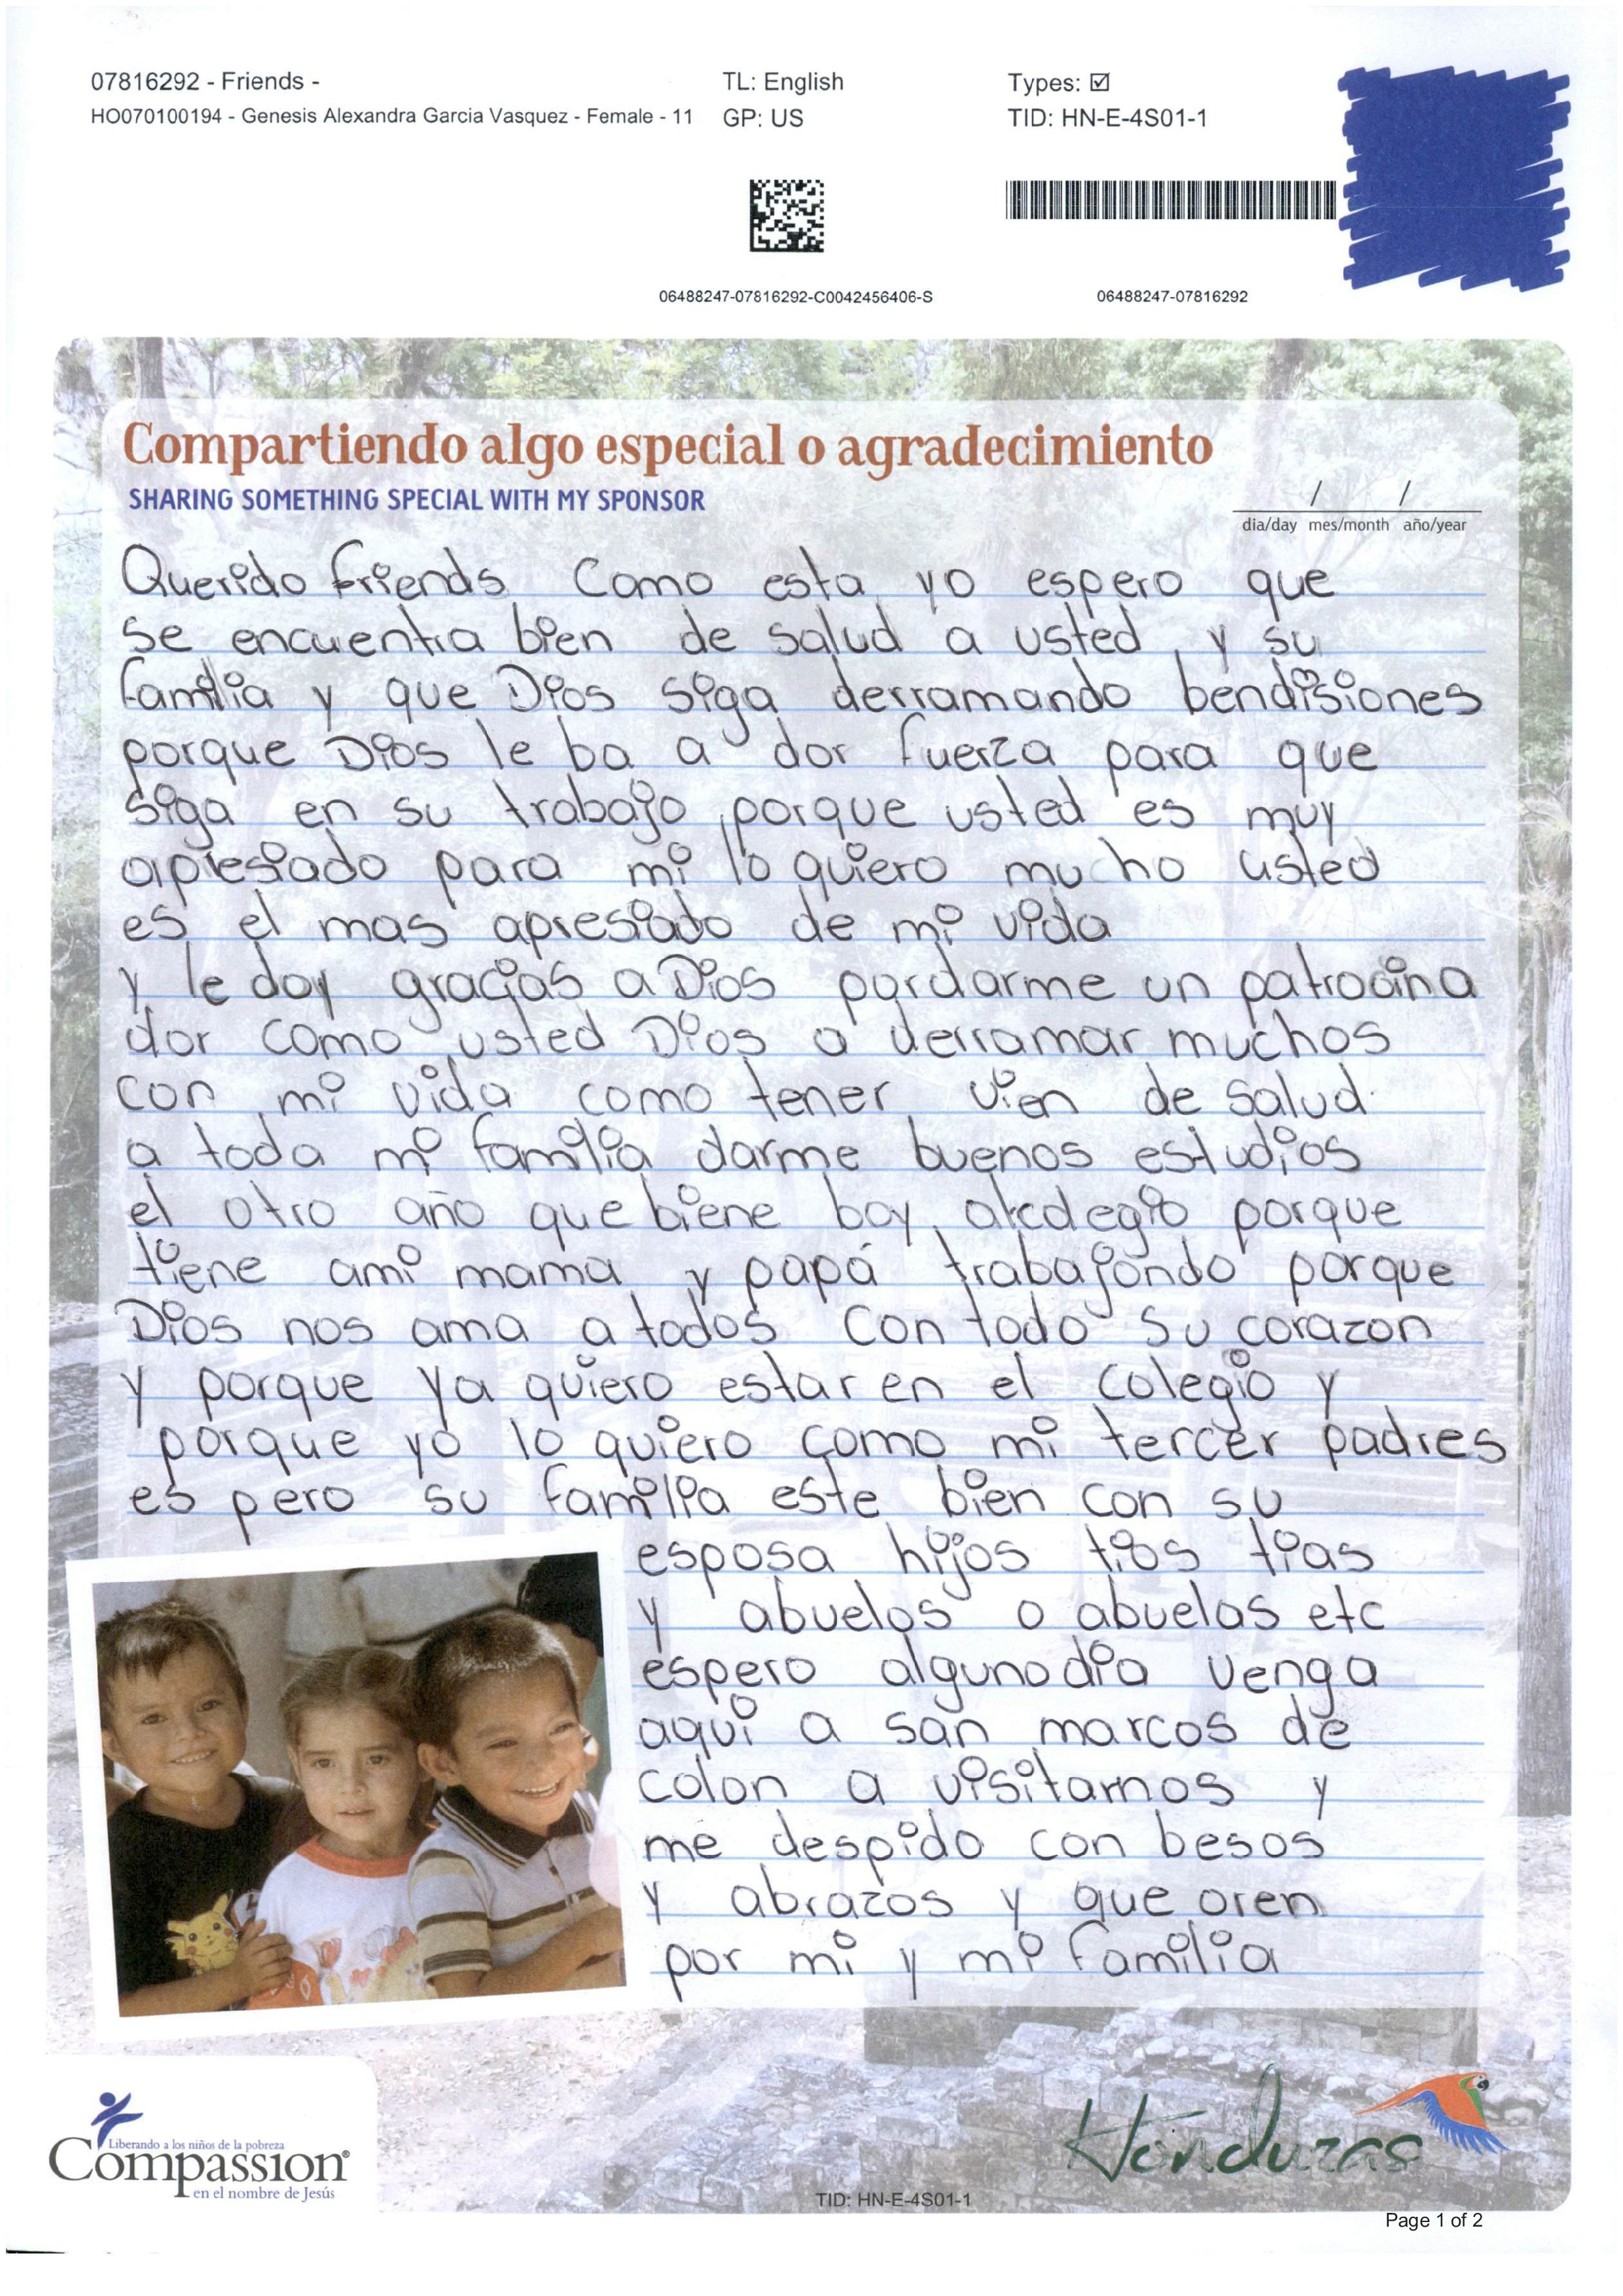 07816292 - Friends -
TL: English
Types: ☑
HO070100194 - Genesis Alexandra Garcia Vasquez - Female - 11
GP: US
TID: HN-E-4S01-1
06488247-07816292-C0042456406-S
06488247-07816292
Compartiendo algo especial o agradecimiento
SHARING SOMETHING SPECIAL WITH MY SPONSOR
/ /
dia/day mes/month año/year
Querido friends Como esta yo espero que
se encuentra bien de salud a usted y su
familia y que Dios siga derramando bendisiones
porque Dios le ba a dar fuerza para que
siga en su trabajo porque usted es muy
apresiado para mi lo quiero mucho usted
es el mas apresiado de mi vida
y le doy gracias a Dios pordarme un patrocina
dor como usted Dios a derramar muchos
con mi vida como tener vien de salud
a toda mi familia darme buenos estudios
el otro año que biene boy alcolegio porque
tiene ami mama y papá trabajando porque
Dios nos ama a todos con todo su corazon
y porque ya quiero estar en el colegio y
porque yo lo quiero como mi tercer padres
espero su familia este bien con su
esposa hijos tios tias
y abuelos o abuelas etc
espero alguno dia venga
aqui a san marcos de
colon a visitarnos y
me despido con besos
y abrazos y que oren
por mi y mi familia
Liberando a los niños de la pobreza
Compassion®
en el nombre de Jesús
Honduras
TID: HN-E-4S01-1
Page 1 of 2